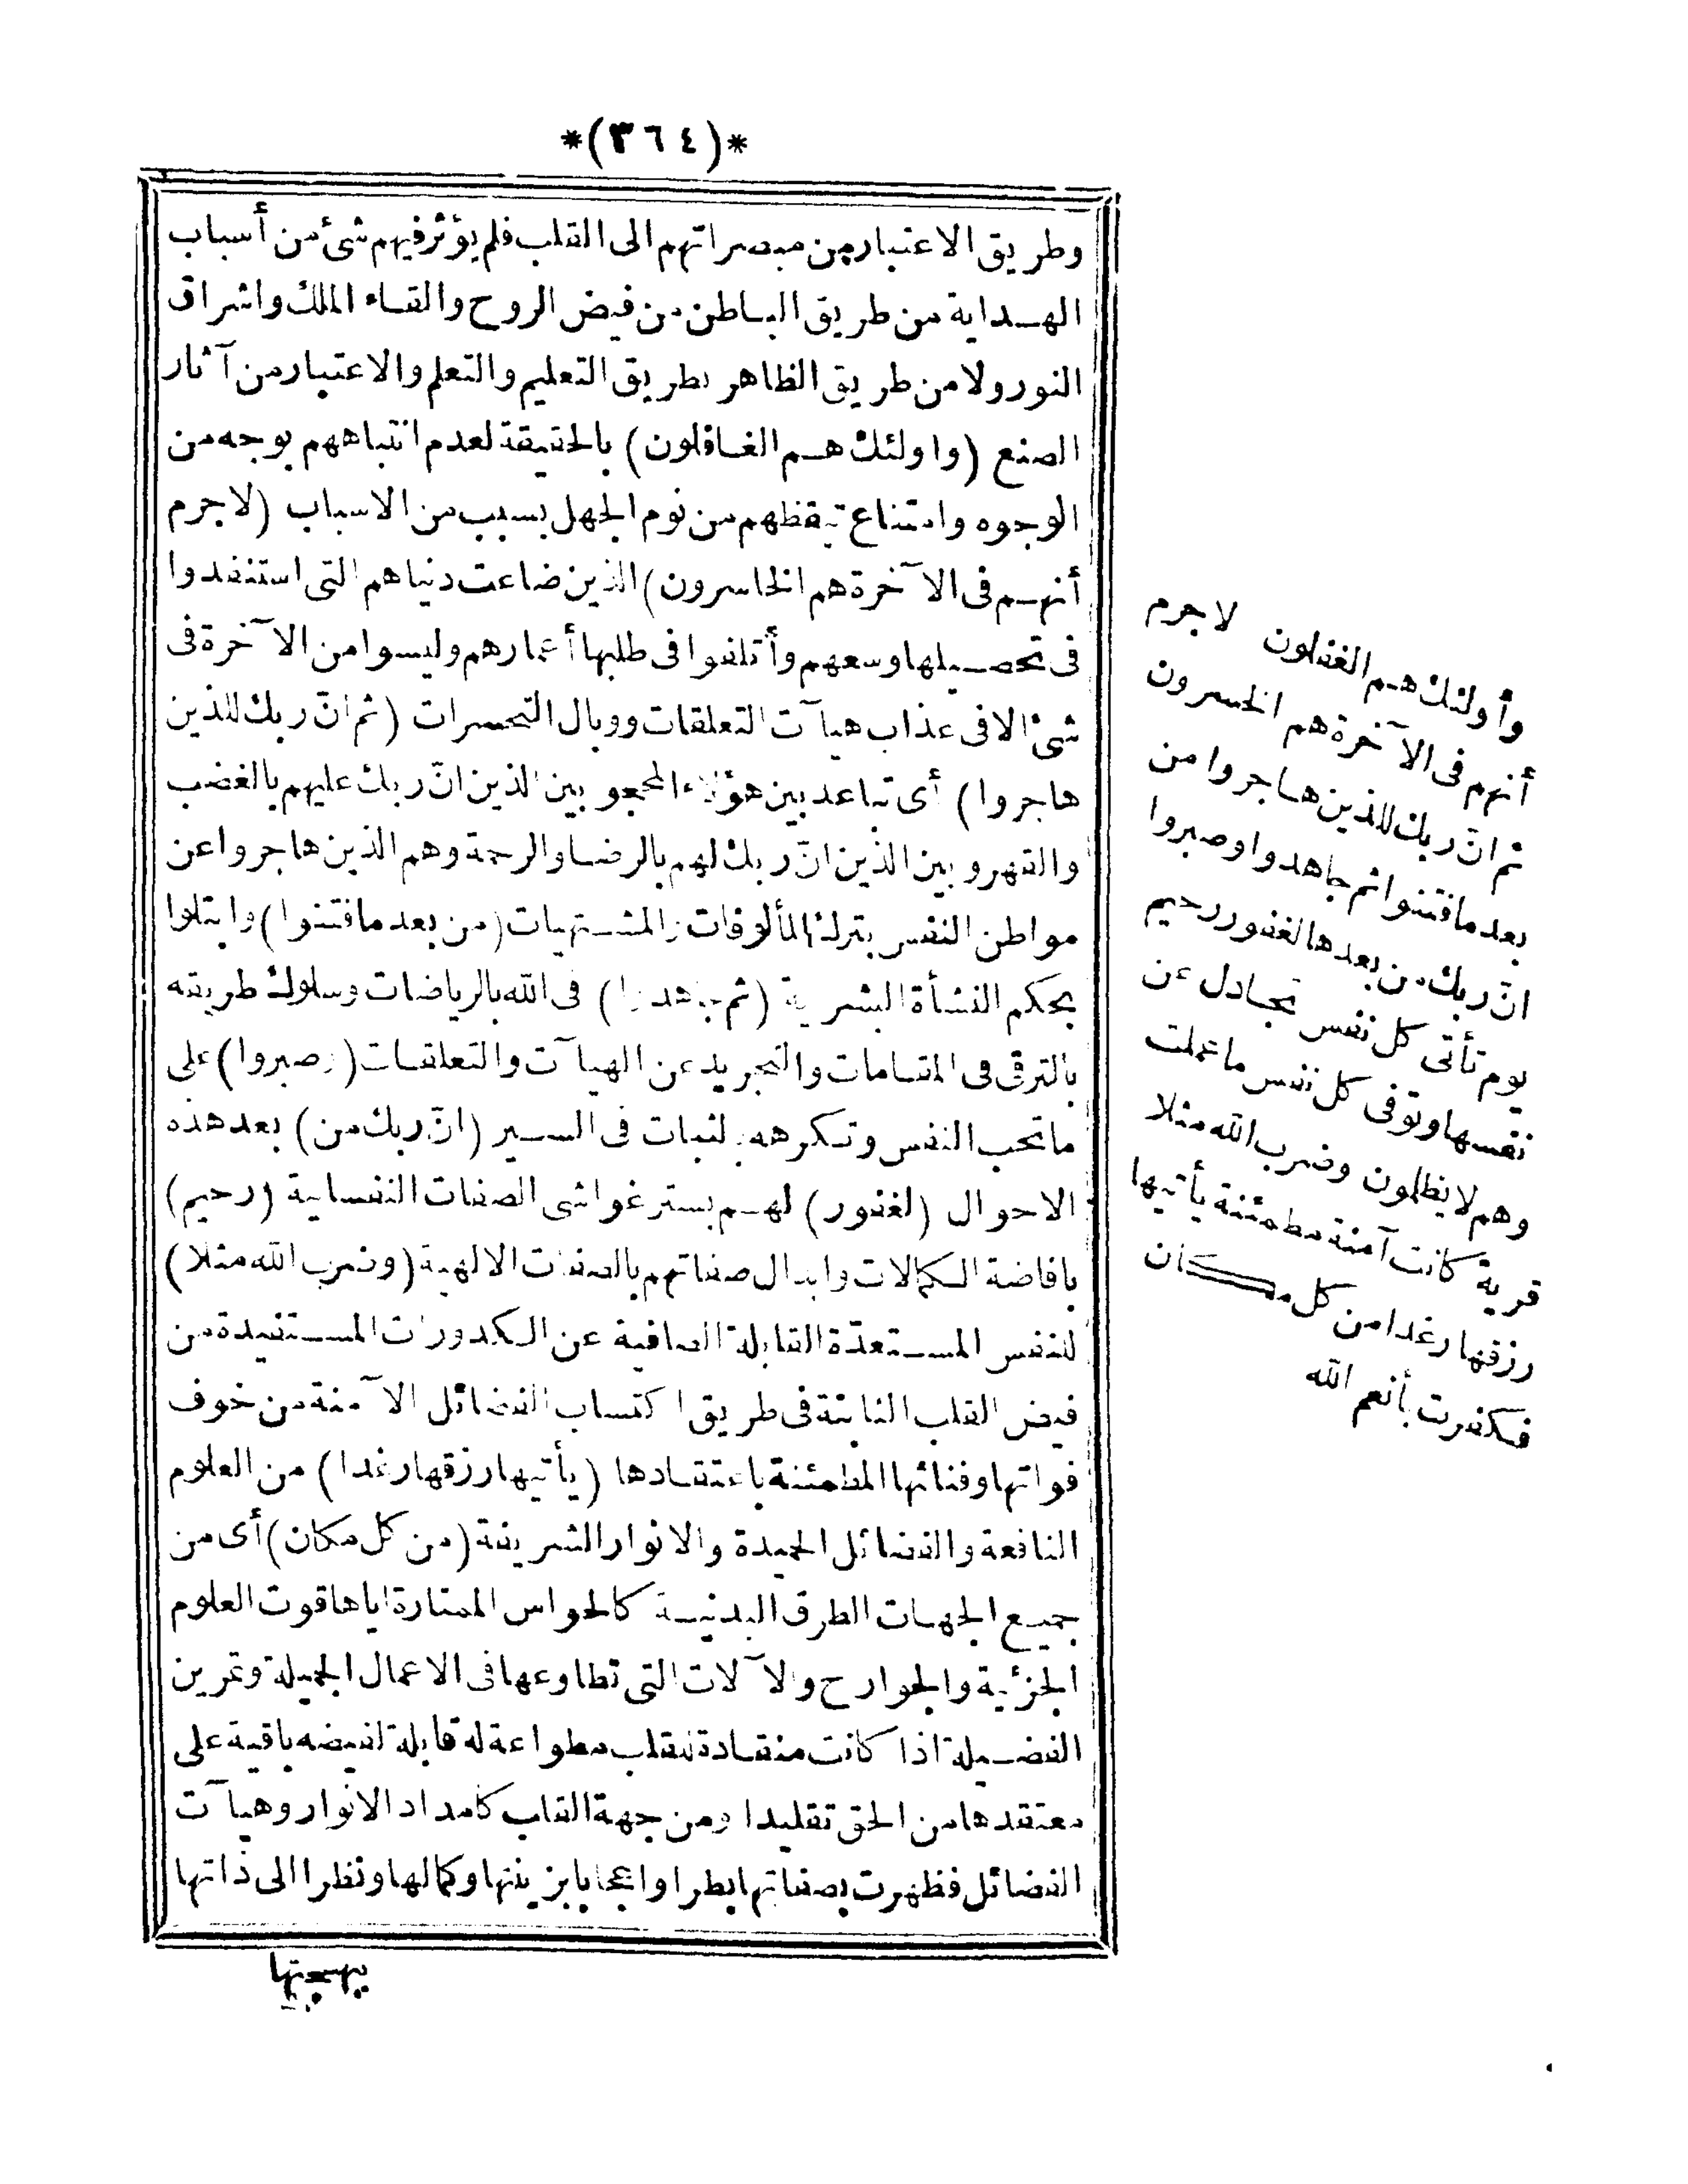 *(٣٦٤)*
وطريق الاعتبار من مبصراتهم الى القلب فلم يؤثر فيهم شئ من أسباب
الهداية من طريق الباطن من فيض الروح والقاء الملك واشراق
النور ولا من طريق الظاهر بطريق التعليم والتعلم والاعتبار من آثار
الصنع (واولئك هم الغافلون) بالحقيقة لعدم انتباههم بوجه من
الوجوه وامتناع تيقظهم من نوم الجهل بسبب من الاسباب (لاجرم
أنهم فى الآخرة هم الخاسرون) الذين ضاعت دنياهم التى استنفدوا
فى تحصيلها وسعهم وأتلفوا فى طلبها أعمارهم وليسوا من الآخرة فى
شئ الا فى عذاب هيآت التعلقات ووبال التحسرات (ثم انّ ربك للذين
هاجروا) أى تباعد بين هؤلاء المحجوبين الذين انّ ربك عليهم بالغضب
والقهر وبين الذين انّ ربك لهم بالرضا والرحمة وهم الذين هاجروا عن
مواطن النفس بترك المألوفات والمشتهيات (من بعد مافتنوا) وابتلوا
بحكم النشأة البشرية (ثم جاهدوا) فى الله بالرياضات وسلوك طريقه
بالترقى فى المقامات والتجريد عن الهيآت والتعلقات (وصبروا) على
ماتحب النفس وتكرهه بالثبات فى السير (انّ ربك من) بعد هذه
الاحوال (لغفور) لهم بستر غواشى الصفات النفسانية (رحيم)
بافاضة الكمالات وابدال صفاتهم بالصفات الالهية (وضرب الله مثلا)
للنفس المستعدّة القابلة الصافية عن الكدورات المستفيدة من
فيض القلب الثابتة فى طريق اكتساب الفضائل الآمنة من خوف
فواتها وفنائها المطمئنة باعتقادها (يأتيها رزقها رغدا) من العلوم
النافعة والفضائل الحميدة والانوار الشريفة (من كل مكان) أى من
جميع الجهات الطرق البدنية كالحواس الممتارة اياها قوت العلوم
الجزئية والجوارح والآلات التى تطاوعها فى الاعمال الجميلة وتمرين
الفضيلة اذا كانت منقادة للقلب مطواعة له قابلة لفيضه باقية على
معتقدها من الحق تقليدا ومن جهة القلب كامداد الانوار وهيآت
الفضائل فظهرت بصفاتها بطرا واعجابا بزينتها وكمالها ونظرا الى ذاتها
ببهجتها
وأولئك هم الغفلون لاجرم
أنهم فى الآخرة هم الخسرون
ثم انّ ربك للذين هاجروا من
بعد مافتنوا ثم جاهدوا وصبروا
انّ ربك من بعدها لغفور رحيم
يوم تأتى كل نفس تجادل عن
نفسها وتوفى كل نفس ماعملت
وهم لايظلمون وضرب الله مثلا
قرية كانت آمنة مطمئنة يأتيها
رزقها رغدا من كل مكان
فكفرت بأنعم الله